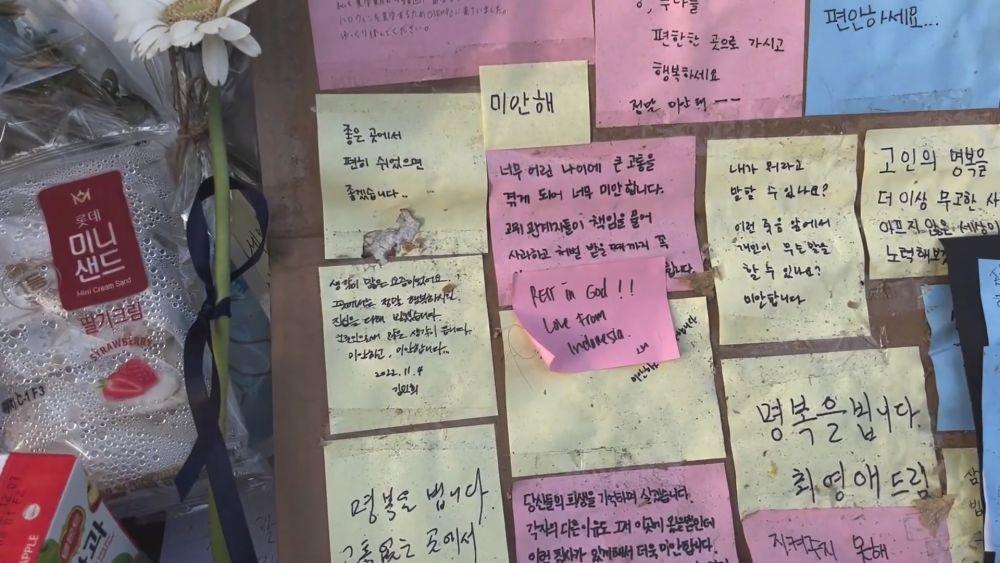 ゆっくり休んでください。
편한한 곳으로 가시고
행복하세요
정말 미안해 ㅡㅡ
편안하세요...
미안해
좋은 곳에서
편히 쉬었으면
좋겠습니다..
너무 어린 나이에 큰 고통을
겪게 되어 너무 미안합니다.
고위 관계자들이 책임을 물어
사과하고 처벌 받을 때까지 꼭
내가 뭐라고
말할 수 있나요?
이런 죽음 앞에서
개인이 무슨 말을
할 수 있나요?
미안합니다
고인의 명복을
더 이상 무고한
아프지 않은 세상이
노력해
REST in God!!
Love from
Indonesia.
생각이 많은 요즘이었어요
정말 행복하시길
진심을 다해 바랍니다.
미안하고, 미안합니다..
2022.11.4
명복을 빕니다.
최영애 드림
명복을 빕니다.
고통없는 곳에서
당신들의 희생을 기억하며 살겠습니다.
각자의 다른 이유로 그저 이곳에 왔을뿐인데
이런 참사가 있게해서 더욱 미안합니다.
지켜주지 못해
롯데
미니
샌드
Mini Cream Sand
딸기크림
STRAWBERRY
APPLE